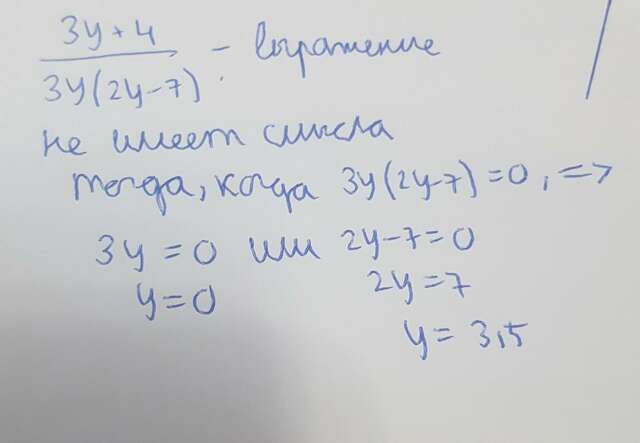 3y+4
3y(2y-7) - выражение
не имеет смысла
тогда, когда 3y(2y-7)=0, =>
3y=0 или 2y-7=0
y=0 2y=7
y=3,5